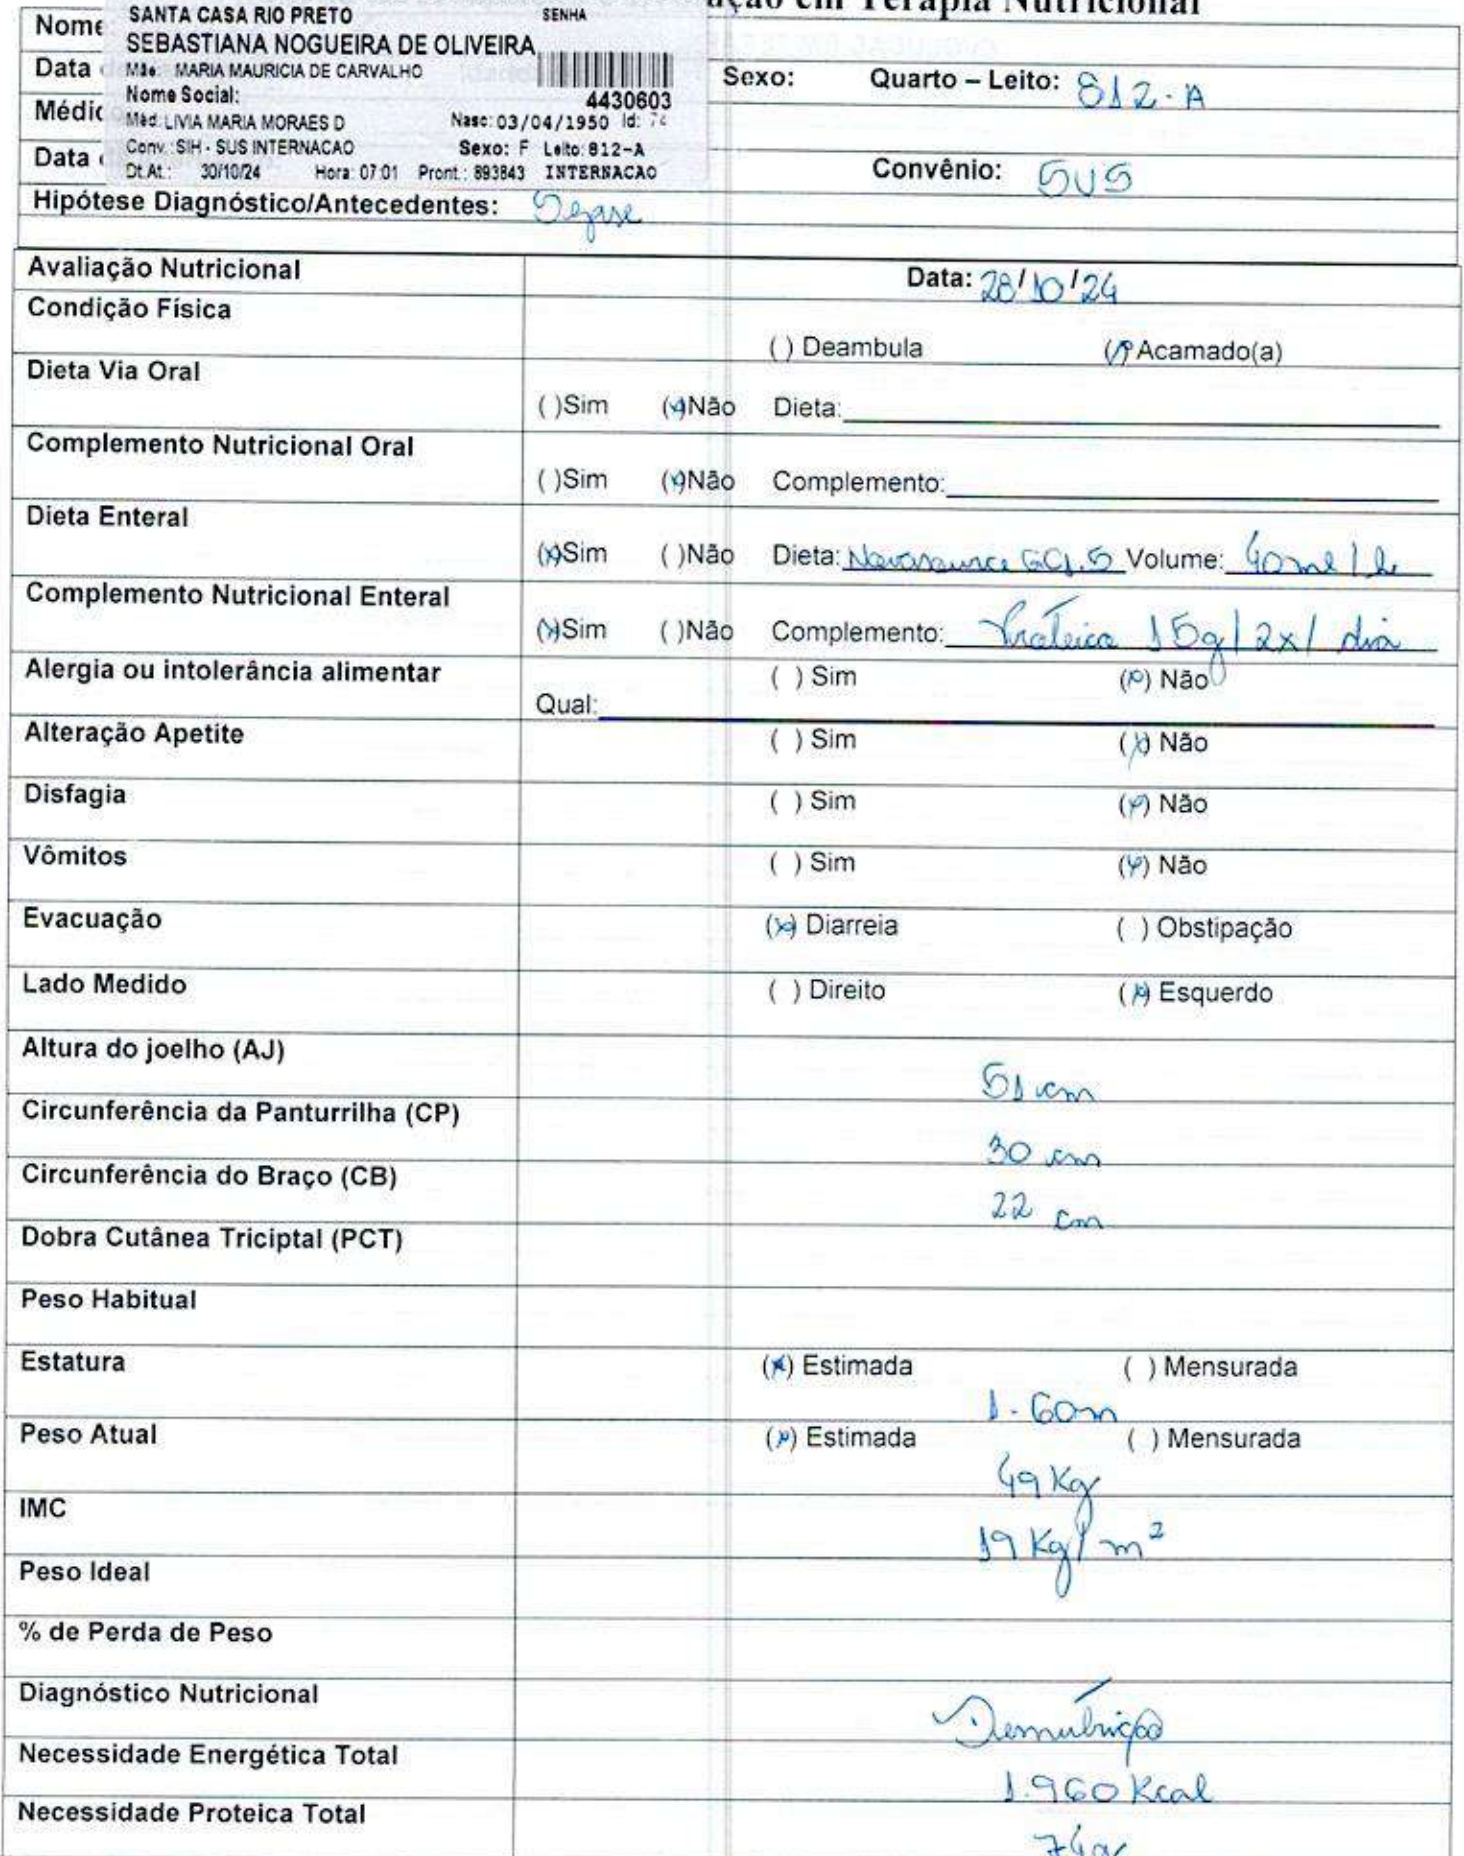 ção em Terapia Nutricional
SANTA CASA RIO PRETO SENHA
Nome
SEBASTIANA NOGUEIRA DE OLIVEIRA
Data Mãe: MARIA MAURICIA DE CARVALHO Sexo: Quarto – Leito: 812-A
Nome Social: 4430603
Médic Méd: LIVIA MARIA MORAES D Nasc: 03/04/1950 Id: 74
Conv.: SIH - SUS INTERNACAO Sexo: F Leito: 812-A
Data Dt.At.: 30/10/24 Hora: 07:01 Pront.: 893843 INTERNACAO Convênio: SUS
Hipótese Diagnóstico/Antecedentes: Sepse
Avaliação Nutricional Data: 28/10/24
Condição Física
( ) Deambula (x) Acamado(a)
Dieta Via Oral
( )Sim (x)Não Dieta:
Complemento Nutricional Oral
( )Sim (x)Não Complemento:
Dieta Enteral
(x)Sim ( )Não Dieta: Novasource GC1.5 Volume: 40ml/h
Complemento Nutricional Enteral
(x)Sim ( )Não Complemento: Proteico 15g/2x/dia
Alergia ou intolerância alimentar ( ) Sim (x) Não
Qual:
Alteração Apetite ( ) Sim (x) Não
Disfagia ( ) Sim (x) Não
Vômitos ( ) Sim (x) Não
Evacuação (x) Diarreia ( ) Obstipação
Lado Medido ( ) Direito (x) Esquerdo
Altura do joelho (AJ)
51 cm
Circunferência da Panturrilha (CP)
30 cm
Circunferência do Braço (CB)
22 cm
Dobra Cutânea Triciptal (PCT)
Peso Habitual
Estatura (x) Estimada ( ) Mensurada
1.60m
Peso Atual (x) Estimada ( ) Mensurada
49 Kg
IMC
19 Kg/m²
Peso Ideal
% de Perda de Peso
Diagnóstico Nutricional
Desnutrição
Necessidade Energética Total
1.960 Kcal
Necessidade Proteica Total
74g